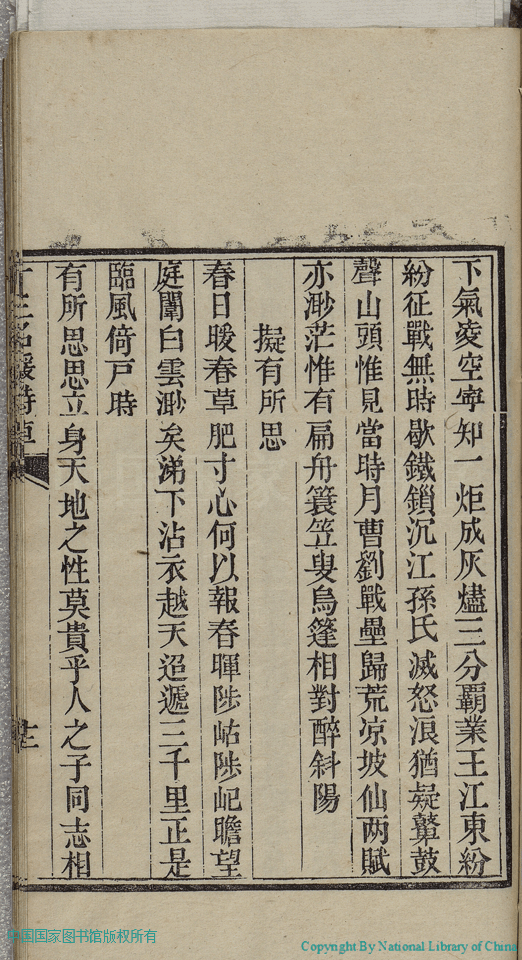 下氣凌空寧知一炬成灰燼三分霸業王江東紛
紛征戰無時歇鐵鎖沉江孫氏滅怒浪猶疑鼙鼓
聲山頭惟見當時月曹劉戰壘歸荒凉坡仙两賦
亦渺茫惟有扁舟簑笠叟烏篷相對醉斜陽
擬有所思
春日暖春草肥寸心何以報春暉陟岵陟屺瞻望
庭闈白雲渺矣涕下沾衣越天迢遞三千里正是
臨風倚戸時
有所思思立身天地之性莫貴乎人之子同志相
中国国家图书馆版权所有
Copyright By National Library of China